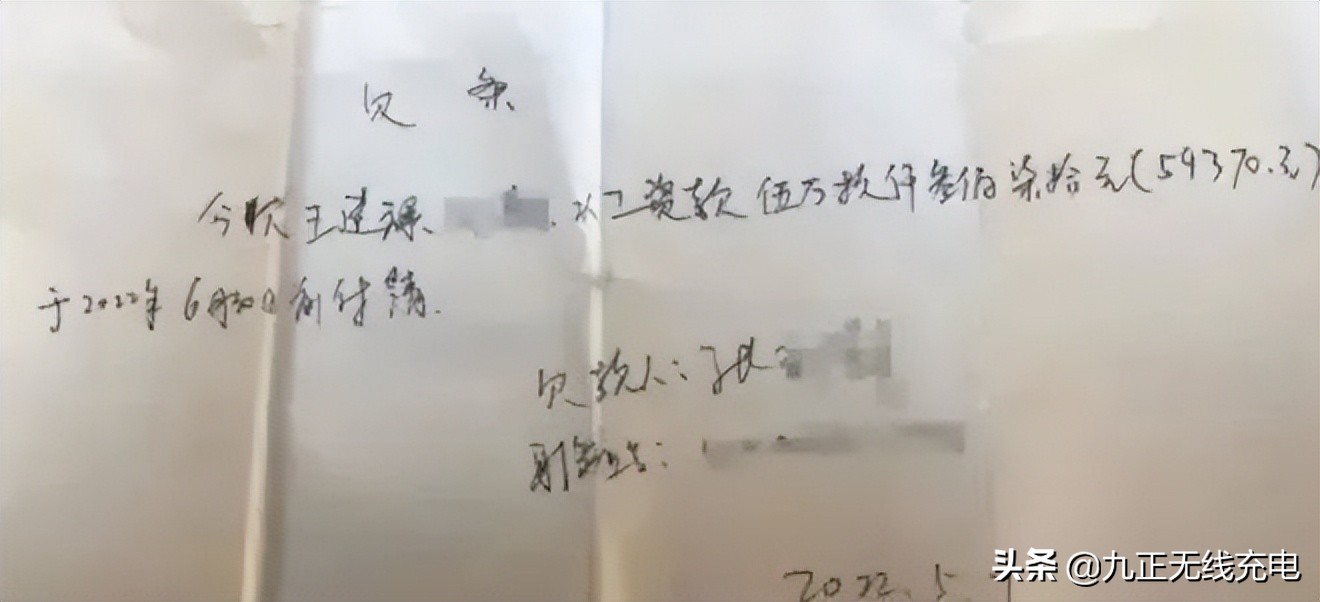 欠 条
今欠王建 工资款伍万玖仟叁佰柒拾元(59370.元)
于2022年6月30日前付清.
欠款人:张
:
2022.5.
头条 @九正无线充电